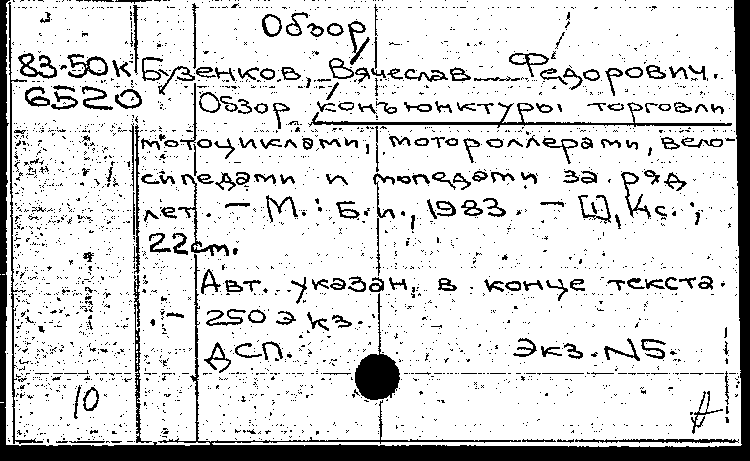 Обзор
83-50к Бузенков, Вячеслав Федорович.
6520 Обзор конъюнктуры торговли
мотоциклами, мотороллерами, вело-
сипедами и мопедами за ряд
лет. - М.: Б.и., 1983. - [1], с.;
22см.
Авт. указан в конце текста.
. - 250 экз.
ДСП. Экз. N5.
10